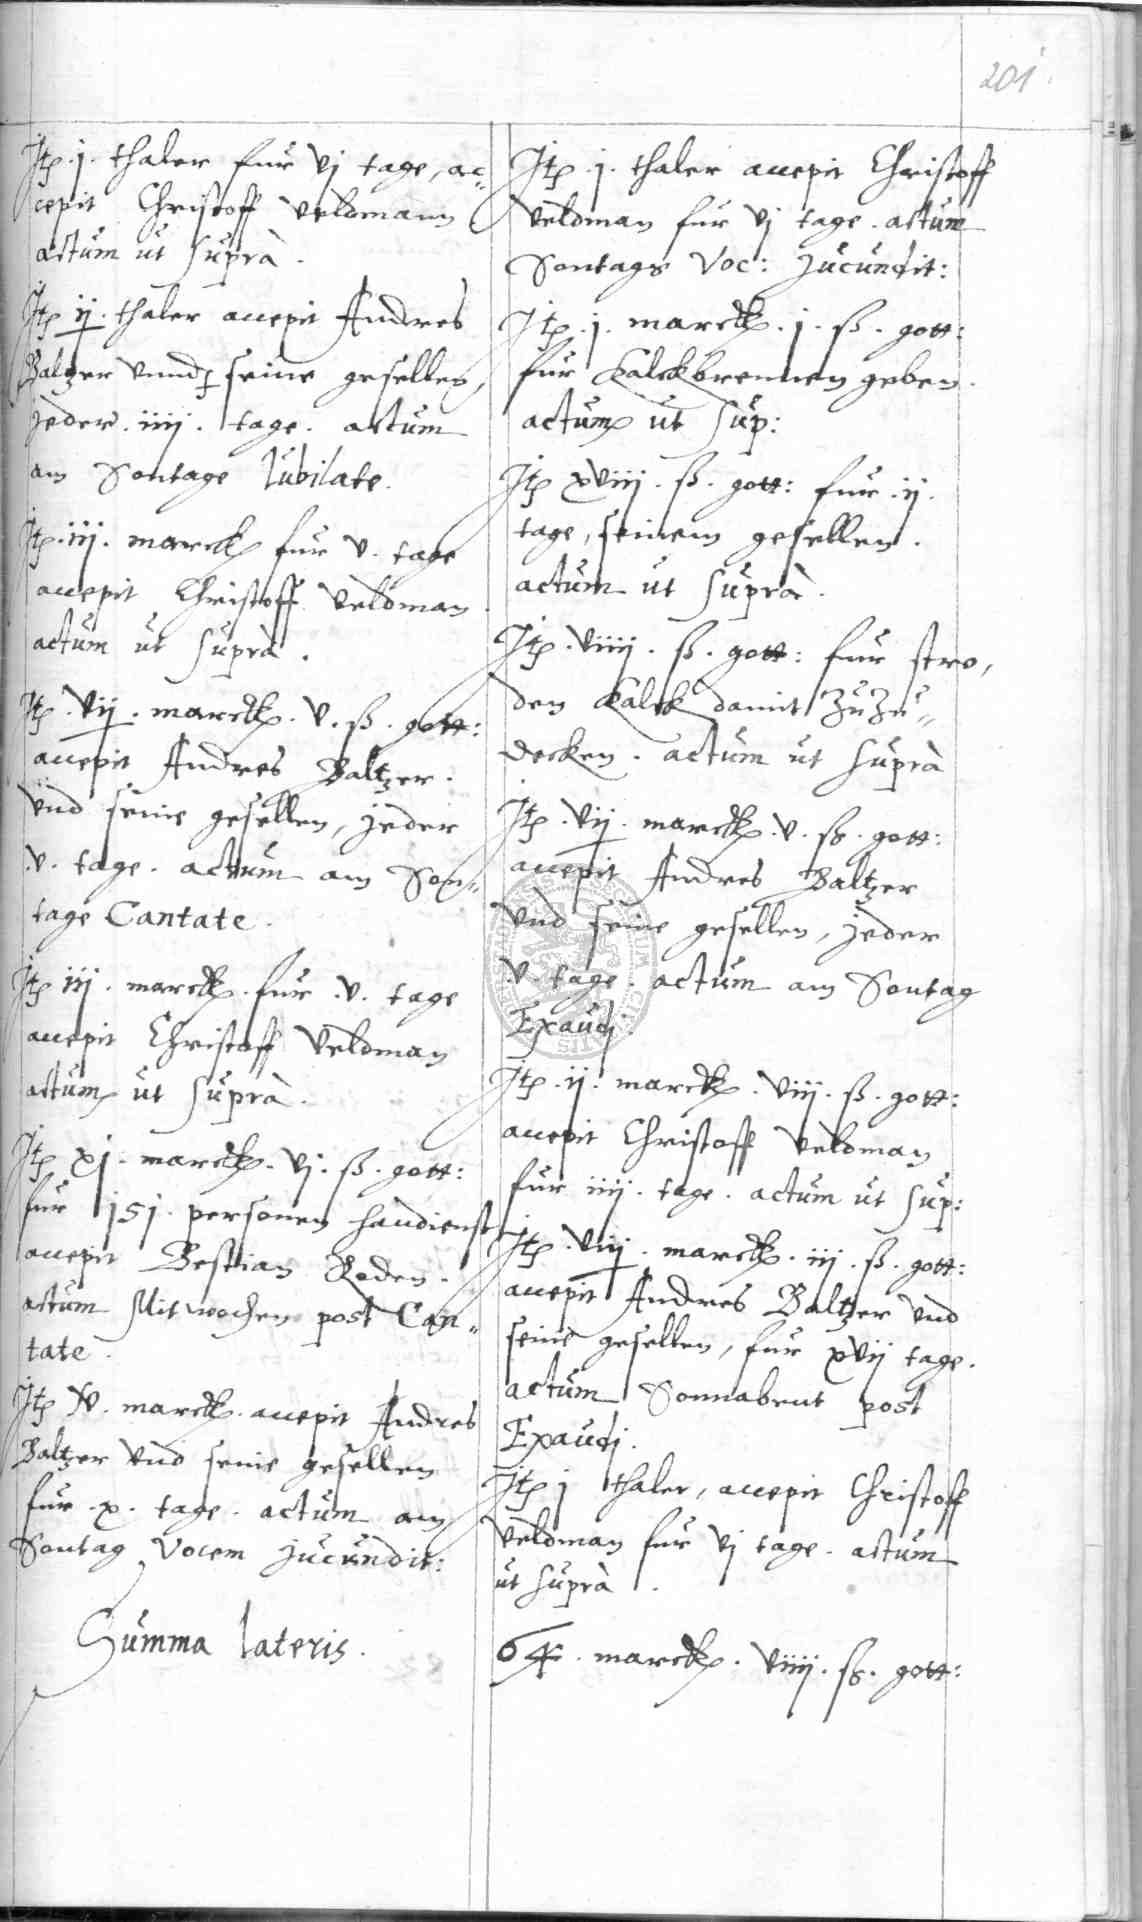 201
Jtp. j. thaler fur vj tage, ac=
cepit Christoff Veldmann
actum ut suprà.
Jtp ij. thaler accepit Andres
Baltzer vnnd seine gesellen,
jeder. iiij. tage. actum
am Sontage Iubilate.
Jtp. iij. marck fur v. tage
accepit Christoff Veldman
actum ut suprà.
Jtp. vij. marck. v. ß. gott:
accepit Andres Baltzer.
vnd seine gesellen, jeder
v. tage. actum am Son=
tage Cantate.
Jtp iij. marck. fur. v. tage
accepit Christoff Veldman
actum ut suprà.
Jtp xj. marck. vj. ß. gott:
fur 151. personen handienst
accepit Bestian Roden.
actum Mitwochen post Can=
tate.
Jtp iv. marck. accepit Andres
Baltzer vnd seine gesellen
fur. x. tage. actum am
Sontag Vocem jucundit:
Summa lateris.
Jtp. j. thaler accepit Christoff
Veldman fur vj tage. actum
Sontags Voc: Jucundit:
Jtp. j. marck. j. ß. gott:
fur Kalckbrennen geben.
actum ut sup:
Jtp xviij. ß. gott: fur. ij.
tage, seinem gesellen.
actum ut suprà.
Jtp. viiij. ß. gott: fur stro,
den Kalck damit zuzu=
decken. actum ut suprà
Jtp. vij. marck. v. ß. gott:
accepit Andres Baltzer
vnd seine gesellen, jeder
v. tage. actum am Sontag
Exaudi.
Jtp. ij. marck. viij. ß. gott:
accepit Christoff Veldman
fur iiij. tage. actum ut sup:
Jtp. viij. marck. iij. ß. gott:
accepit Andres Baltzer vnd
seine gesellen, fur xvij tage.
actum Sonnabent post
Exaudi.
Jtp j thaler, accepit Christoff
Veldman fur vj tage. actum
ut suprà.
64. marck. viiij. ß. gott: